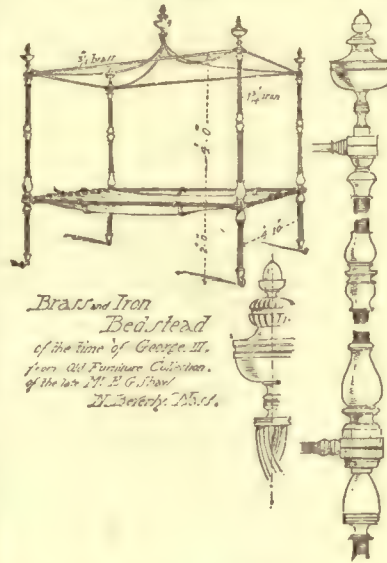 brass
1¾" iron
4'.0"
2'.0"
Brass and Iron
Bedstead
of the time of George III.
from Old Furniture Collection.
of the late Mr. E G. Shaw
N. Beverly. Mass.